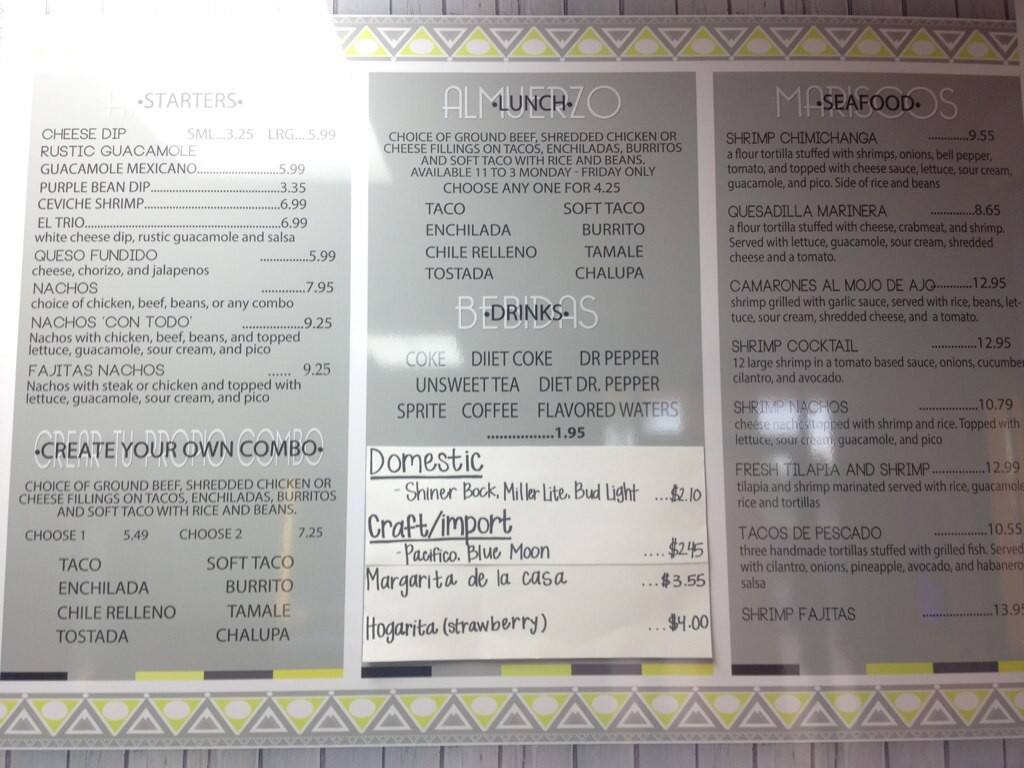 •STARTERS•
CHEESE DIP SML...3.25 LRG...5.99
RUSTIC GUACAMOLE
GUACAMOLE MEXICANO.....................5.99
PURPLE BEAN DIP................................3.35
CEVICHE SHRIMP.................................6.99
EL TRIO..............................................6.99
white cheese dip, rustic guacamole and salsa
QUESO FUNDIDO ...............5.99
cheese, chorizo, and jalapenos
NACHOS .............7.95
choice of chicken, beef, beans, or any combo
NACHOS 'CON TODO' ..................9.25
Nachos with chicken, beef, beans, and topped
lettuce, guacamole, sour cream, and pico
FAJITAS NACHOS ...... 9.25
Nachos with steak or chicken and topped with
lettuce, guacamole, sour cream, and pico
CREAR TU PROPIO COMBO
•CREATE YOUR OWN COMBO•
CHOICE OF GROUND BEEF, SHREDDED CHICKEN OR
CHEESE FILLINGS ON TACOS, ENCHILADAS, BURRITOS
AND SOFT TACO WITH RICE AND BEANS.
CHOOSE 1 5.49 CHOOSE 2 7.25
TACO SOFT TACO
ENCHILADA BURRITO
CHILE RELLENO TAMALE
TOSTADA CHALUPA
ALMUERZO
•LUNCH•
CHOICE OF GROUND BEEF, SHREDDED CHICKEN OR
CHEESE FILLINGS ON TACOS, ENCHILADAS, BURRITOS
AND SOFT TACO WITH RICE AND BEANS.
AVAILABLE 11 TO 3 MONDAY - FRIDAY ONLY
CHOOSE ANY ONE FOR 4.25
TACO SOFT TACO
ENCHILADA BURRITO
CHILE RELLENO TAMALE
TOSTADA CHALUPA
BEBIDAS
•DRINKS•
COKE DIIET COKE DR PEPPER
UNSWEET TEA DIET DR. PEPPER
SPRITE COFFEE FLAVORED WATERS
.................1.95
Domestic
- Shiner Bock, Miller Lite, Bud Light ...$2.10
Craft/import
- Pacifico, Blue Moon ....$2.45
Margarita de la casa ...$3.55
Hogarita (strawberry) ...$4.00
MARISCOS
•SEAFOOD•
SHRIMP CHIMICHANGA .............9.55
a flour tortilla stuffed with shrimps, onions, bell pepper,
tomato, and topped with cheese sauce, lettuce, sour cream,
guacamole, and pico. Side of rice and beans
QUESADILLA MARINERA ..............8.65
a flour tortilla stuffed with cheese, crabmeat, and shrimp.
Served with lettuce, guacamole, sour cream, shredded
cheese and a tomato.
CAMARONES AL MOJO DE AJO...........12.95
shrimp grilled with garlic sauce, served with rice, beans, let-
tuce, sour cream, shredded cheese, and a tomato.
SHRIMP COCKTAIL ..............12.95
12 large shrimp in a tomato based sauce, onions, cucumber
cilantro, and avocado.
SHRIMP NACHOS .................10.79
cheese nachos topped with shrimp and rice. Topped with
lettuce, sour cream, guacamole, and pico
FRESH TILAPIA AND SHRIMP...............12.99
tilapia and shrimp marinated served with rice, guacamole
rice and tortillas
TACOS DE PESCADO ..............10.55
three handmade tortillas stuffed with grilled fish. Served
with cilantro, onions, pineapple, avocado, and habanero
salsa
SHRIMP FAJITAS .................13.95